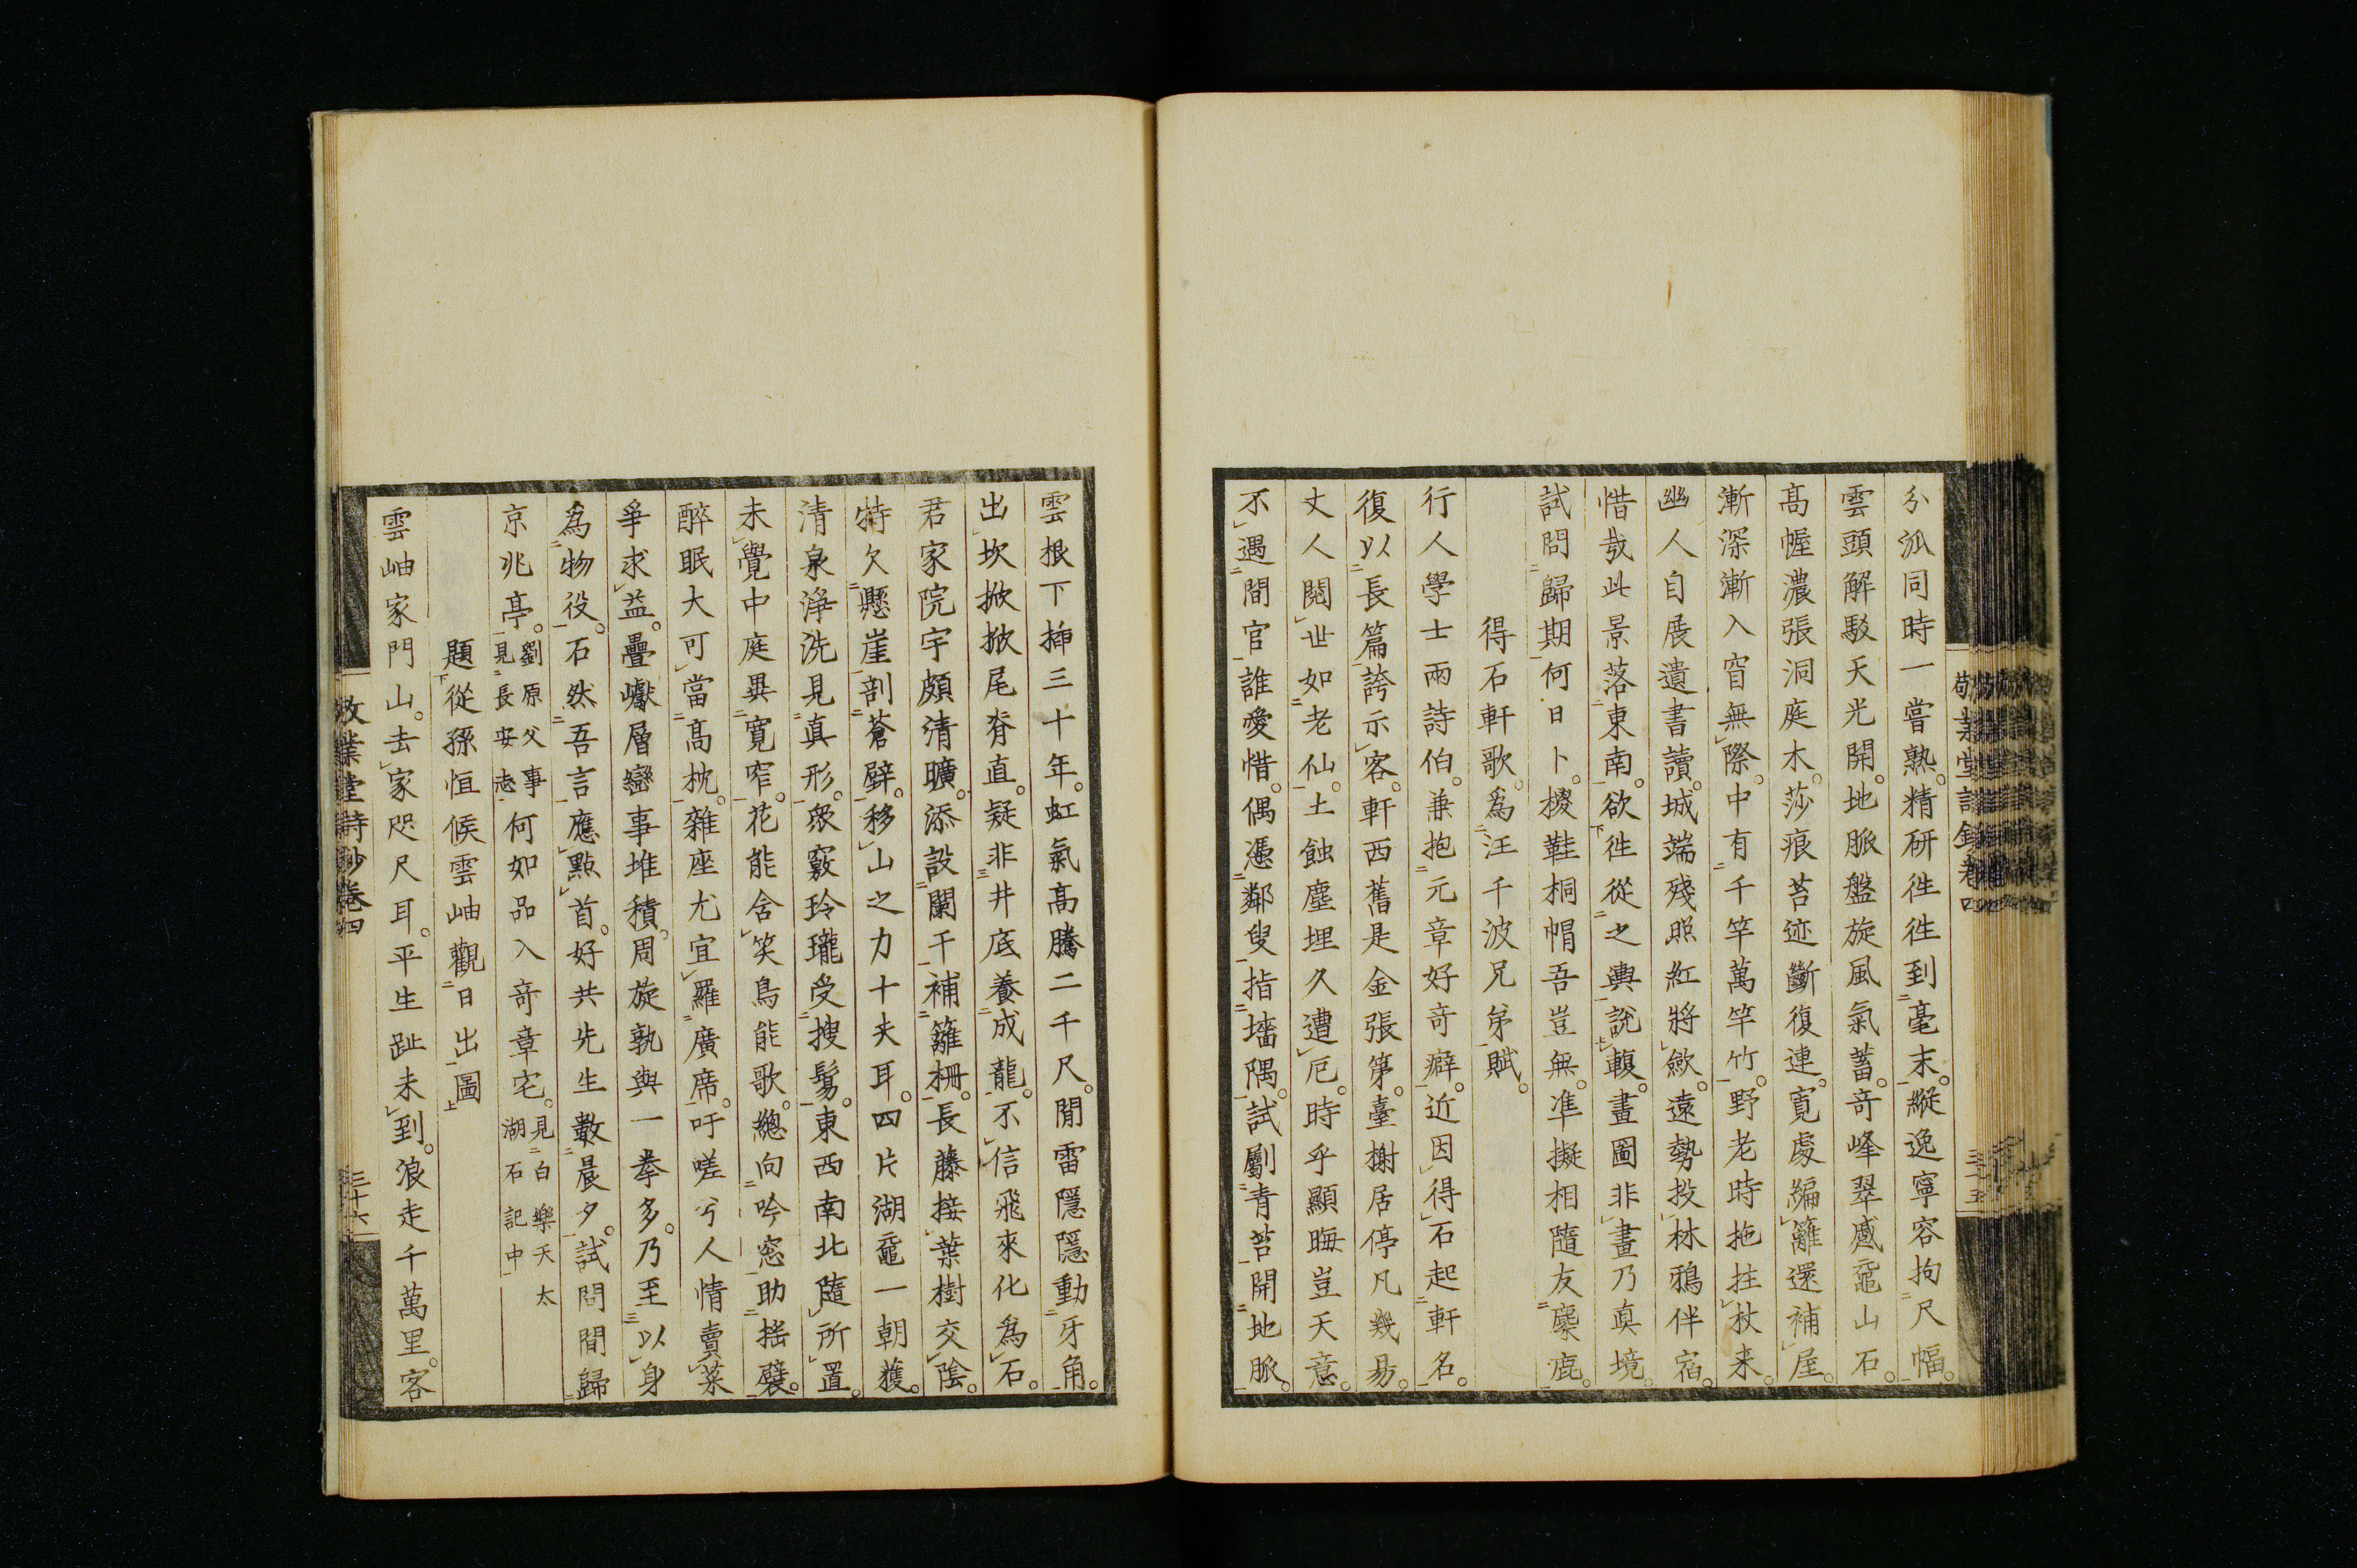 分派同時一嘗熟。精研徃徃到毫末。縱逸寧容拘尺幅。
雲頭解駁天光開。地脈盤旋風氣蓄。奇峰翠蹙黿山石。
高幄濃張洞庭木。莎痕苔迹斷復連。寬處編籬還補屋。
漸深漸入窅無際。中有千竿萬竿竹。野老時拖拄杖来。
幽人自展遺書讀。城端殘照紅將歛。遠勢投林鴉伴宿。
惜哉此景落東南。欲徃從之輿說輹。畫圖非畫乃真境。
試問歸期何日卜。椶鞋桐帽吾豈無。準擬相隨友麋鹿。
得石軒歌。為汪千波兄弟賦。
行人學士兩詩伯。兼抱元章好奇癖。近因得石起軒名。
復以長篇誇示客。軒西舊是金張第。臺榭居停凡幾易。
丈人閱世如老仙。土蝕塵埋久遭厄。時乎顯晦豈天意。
不遇閒官誰愛惜。偶憑鄰叟指墻隅。試劚青苔開地脈。
雲根下揷三十年。虹氣高騰二千尺。閒雷隱隱動牙角。
出坎掀掀尾脊直。疑非井底養成龍。不信飛來化為石。
君家院宇頗清曠。添設闌干補籬柵。長藤接葉樹交陰。
特欠懸崖剖蒼壁。移山之力十夫耳。四片湖黿一朝獲。
清泉淨洗見真形。衆竅玲瓏受搜剔。東西南北隨所置。
未覺中庭異寬窄。花能含笑鳥能歌。總向吟窓助揺襞。
醉眠大可當高枕。雜座尤宜羅廣席。吁嗟兮人情賣菜
爭求益。疊巘層巒事堆積。周旋孰與一拳多。乃至以身
為物役。石然吾言應點首。好共先生數晨夕。試問間歸
京兆亭。劉原父事見長安志何如品入奇章宅。見白樂天太湖石記中
題從孫恒候雲岫觀日出圖
雲岫家門山。去家咫尺耳。平生趾未到。浪走千萬里。客
敬業堂詩鈔卷四
三十六
敬業堂詩鈔卷四
三十五